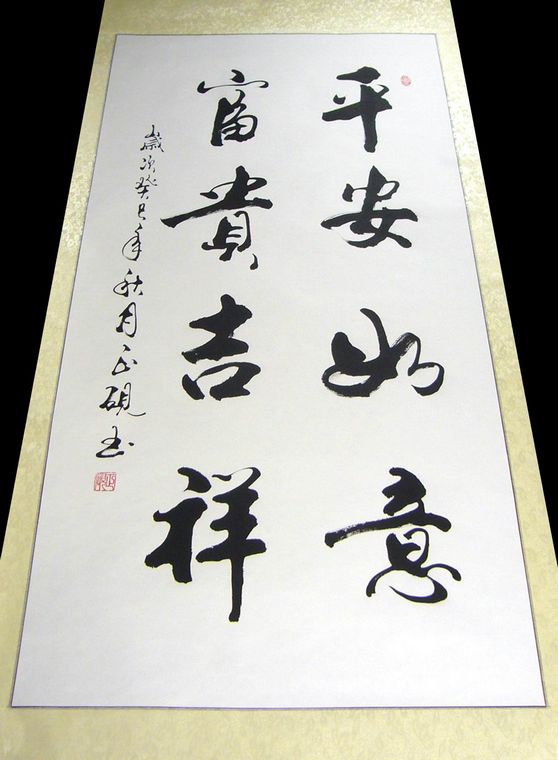 平安如意
富貴吉祥
歲次癸巳年秋月正硯書